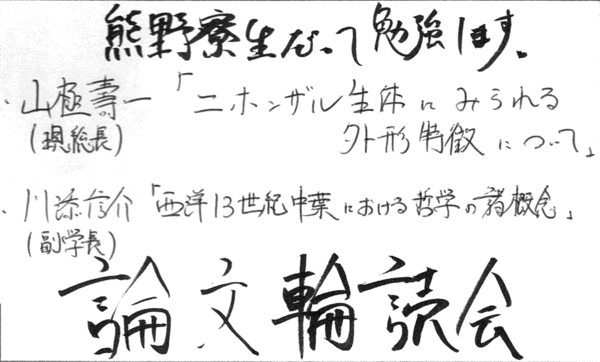 熊野寮生だって勉強します。
・山極壽一「ニホンザル生体にみられる
(現総長) 外形特徴について」
・川添信介「西洋13世紀中葉における哲学の諸概念」
(副学長)
論文輪読会